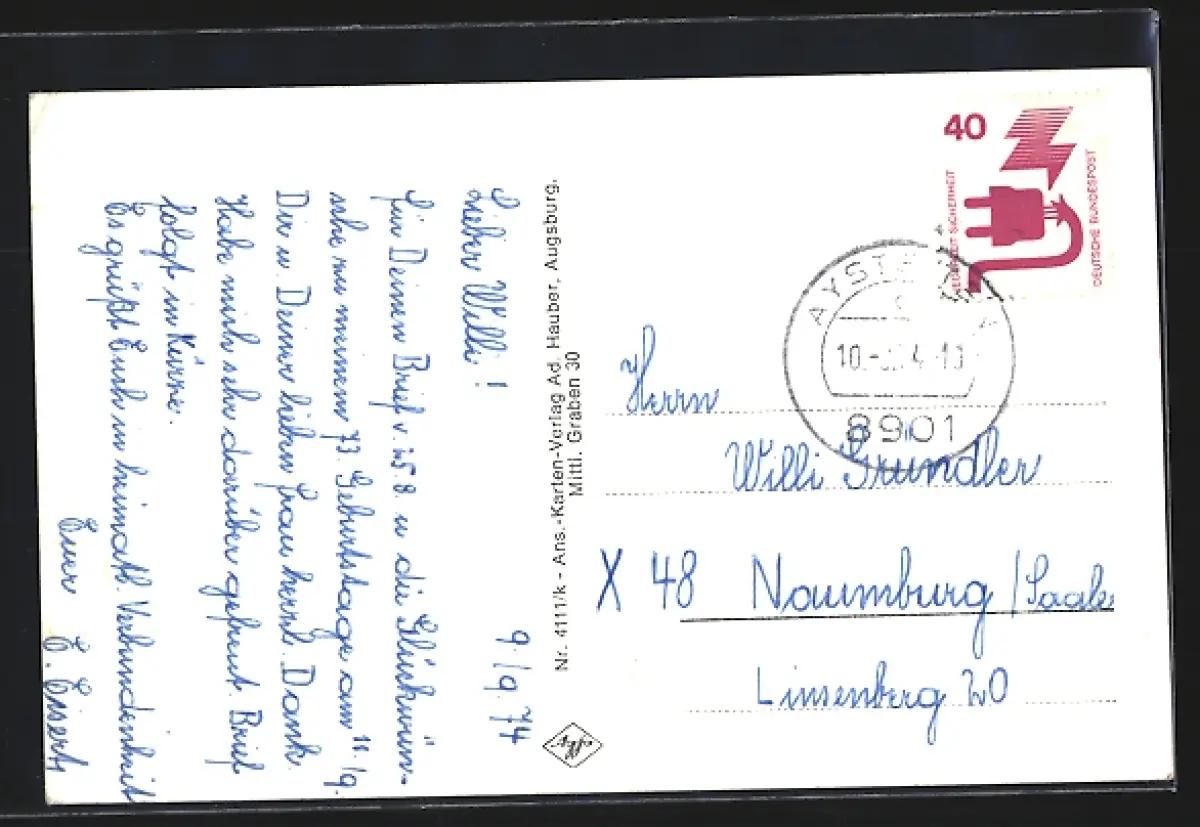 9./9. 74
Lieber Willi!
Für Deinen Brief v. 25.8. u die Glückwün-
sche zu meinem 73. Geburtstage am 11./9.
Dir u. Deiner lieben Frau herzl. Dank.
Habe mich sehr darüber gefreut. Brief
folgt in Kürze.
Es grüßt Euch in heimatl. Verbundenheit
Euer
E. Eisert
Nr. 4111/k - Ans.-Karten-Verlag Ad. Hauber, Augsburg,
Mittl. Graben 30
afka
40
JEDERZEIT SICHERHEIT
DEUTSCHE BUNDESPOST
8901
Herrn
Willi Gründler
X 48 Naumburg/Saale
Linsenberg 20